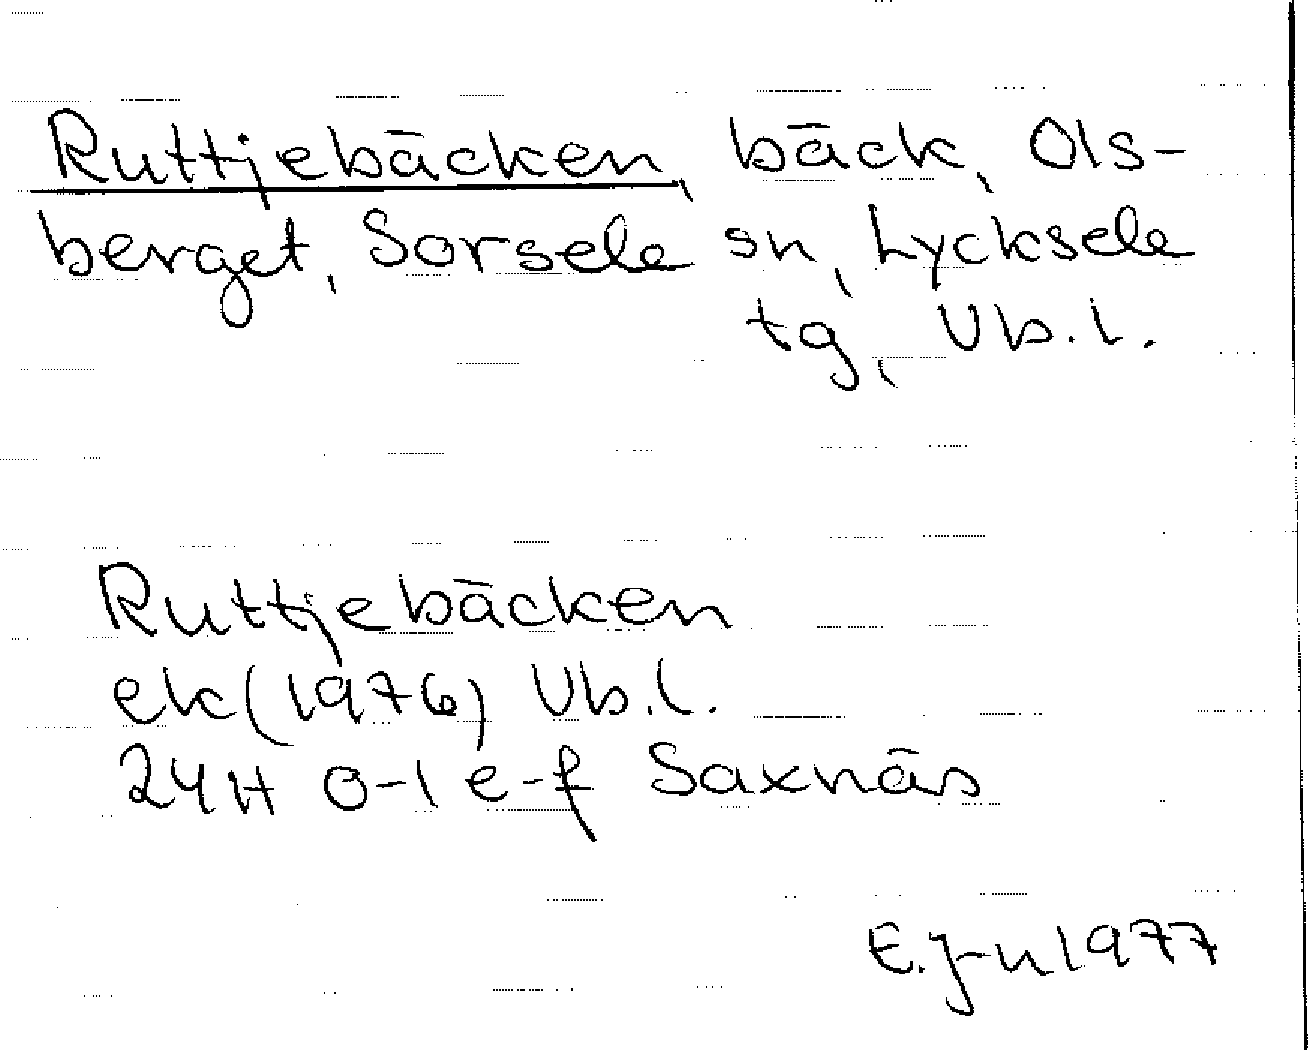 Ruttjebäcken, bäck, Ols-
berget, Sorsele sn, Lycksele
tg, Vb.l.
Ruttjebäcken
ek(1976) Vb.l.
24H 0-1 e-f Saxnäs
E.J-n 1977